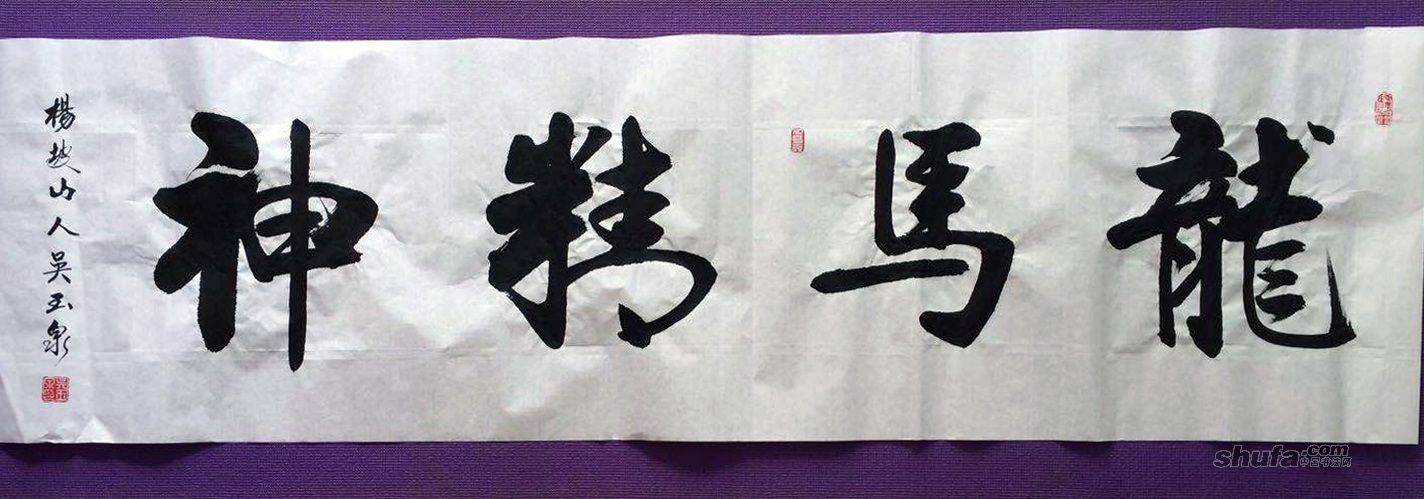 龍馬精神
楊坡山人吳玉泉
shufa.com
中国书法网